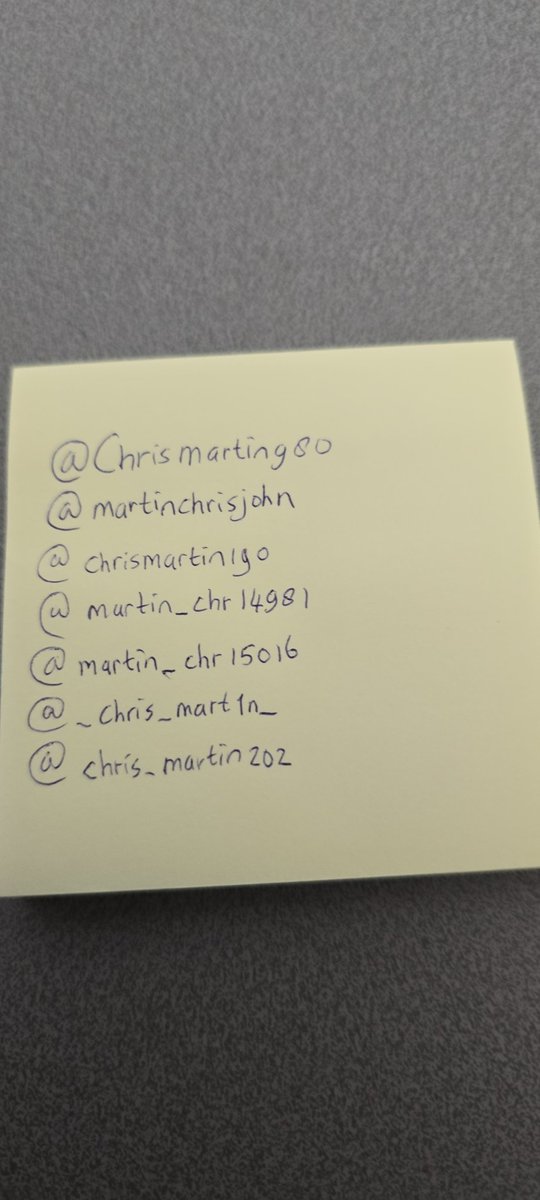 @Chrismarting80
@martinchrisjohn
@chrismartin1g0
@martin_chr14981
@martin_chr15016
@_chris_mart1n_
@chris_martin202